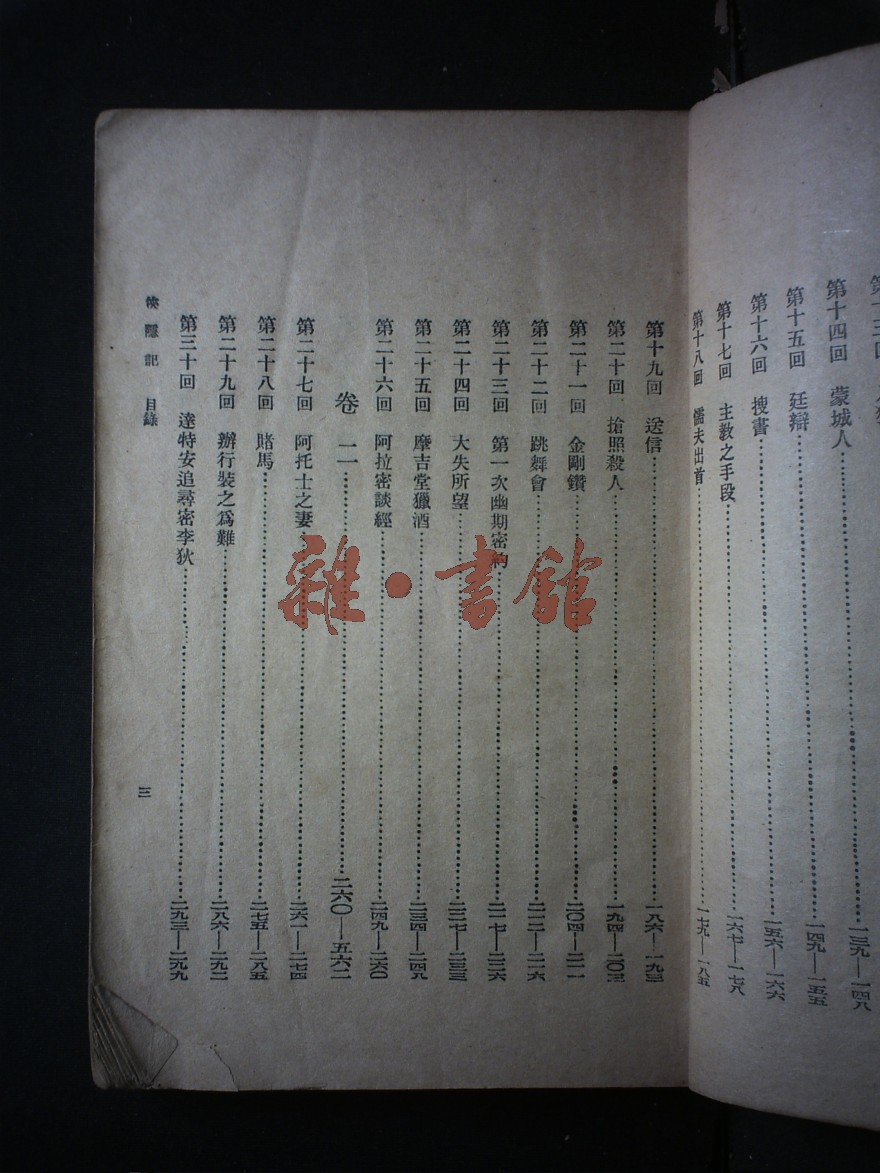 第十四回　蒙城人……一三九—一四八
第十五回　廷辯……一四九—一五五
第十六回　搜書……一五六—一六六
第十七回　主教之手段……一六七—一七八
第十八回　懦夫出首……一七九—一八五
第十九回　送信……一八六—一九三
第二十回　搶照殺人……一九四—二〇三
第二十一回　金剛鑽……二〇四—二一一
第二十二回　跳舞會……二一二—二一六
第二十三回　第一次幽期密約……二一七—二二六
第二十四回　大失所望……二二七—二三三
第二十五回　摩吉堂獵酒……二三四—二四八
第二十六回　阿拉密談經……二四九—二六〇
卷二……二六〇—五六二
第二十七回　阿托士之妻……二六一—二七四
第二十八回　賭馬……二七五—二八五
第二十九回　辦行裝之爲難……二八六—二九二
第三十回　達特安追尋密李狄……二九三—二九九
俠隱記　目錄
三
雜·書館